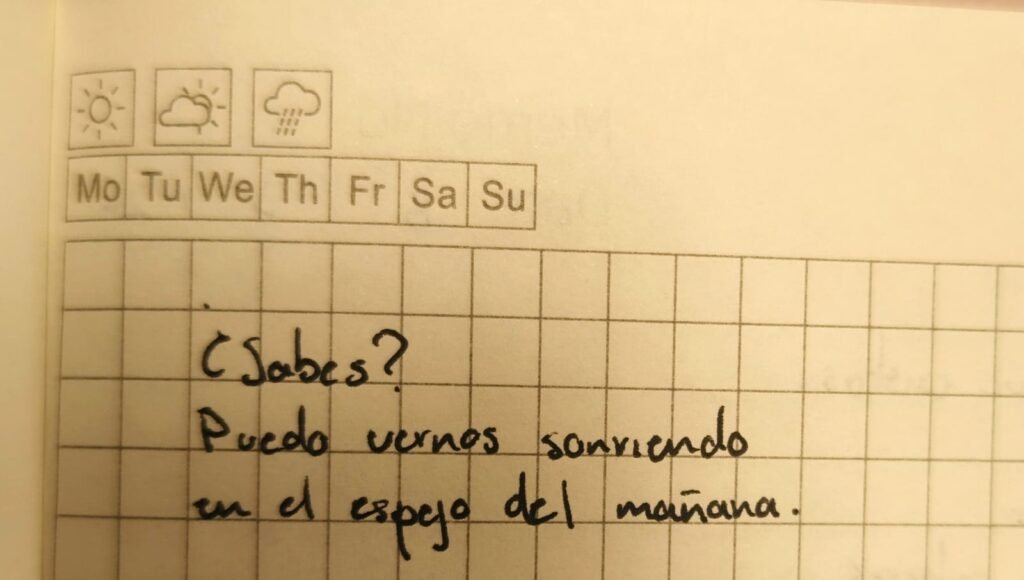 Mo Tu We Th Fr Sa Su
¿Sabes?
Puedo vernos sonriendo
en el espejo del mañana.